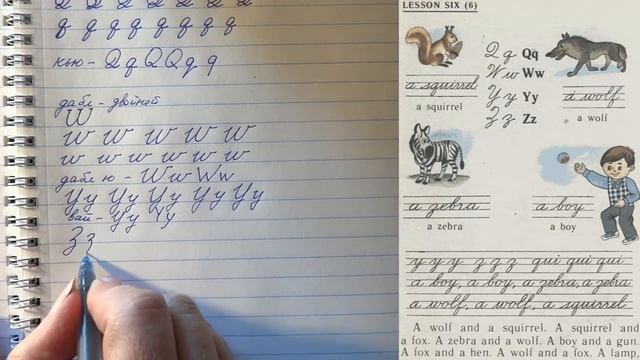 Q Q Q Q Q Q Q
q q q q q q q q
кью - Q q Q Q q q
дабл - двойной
W
W W W W W
w w w w w w
дабл ю - W w W w
Yy Yy Yy Yy Yy
вай - Yy Yy
Z z
LESSON SIX (6)
a squirrel
a squirrel
Q q Qq
W w Ww
Y y Yy
Z z Zz
a wolf
a wolf
a zebra
a zebra
a boy
a boy
y y y z z z qui qui qui
a boy, a boy, a zebra, a zebra
a wolf, a wolf, a squirrel
A wolf and a squirrel. A squirrel and
a fox. A zebra and a wolf. A boy and a gun.
A fox and a hen. A wolf and a fox. A lamp,